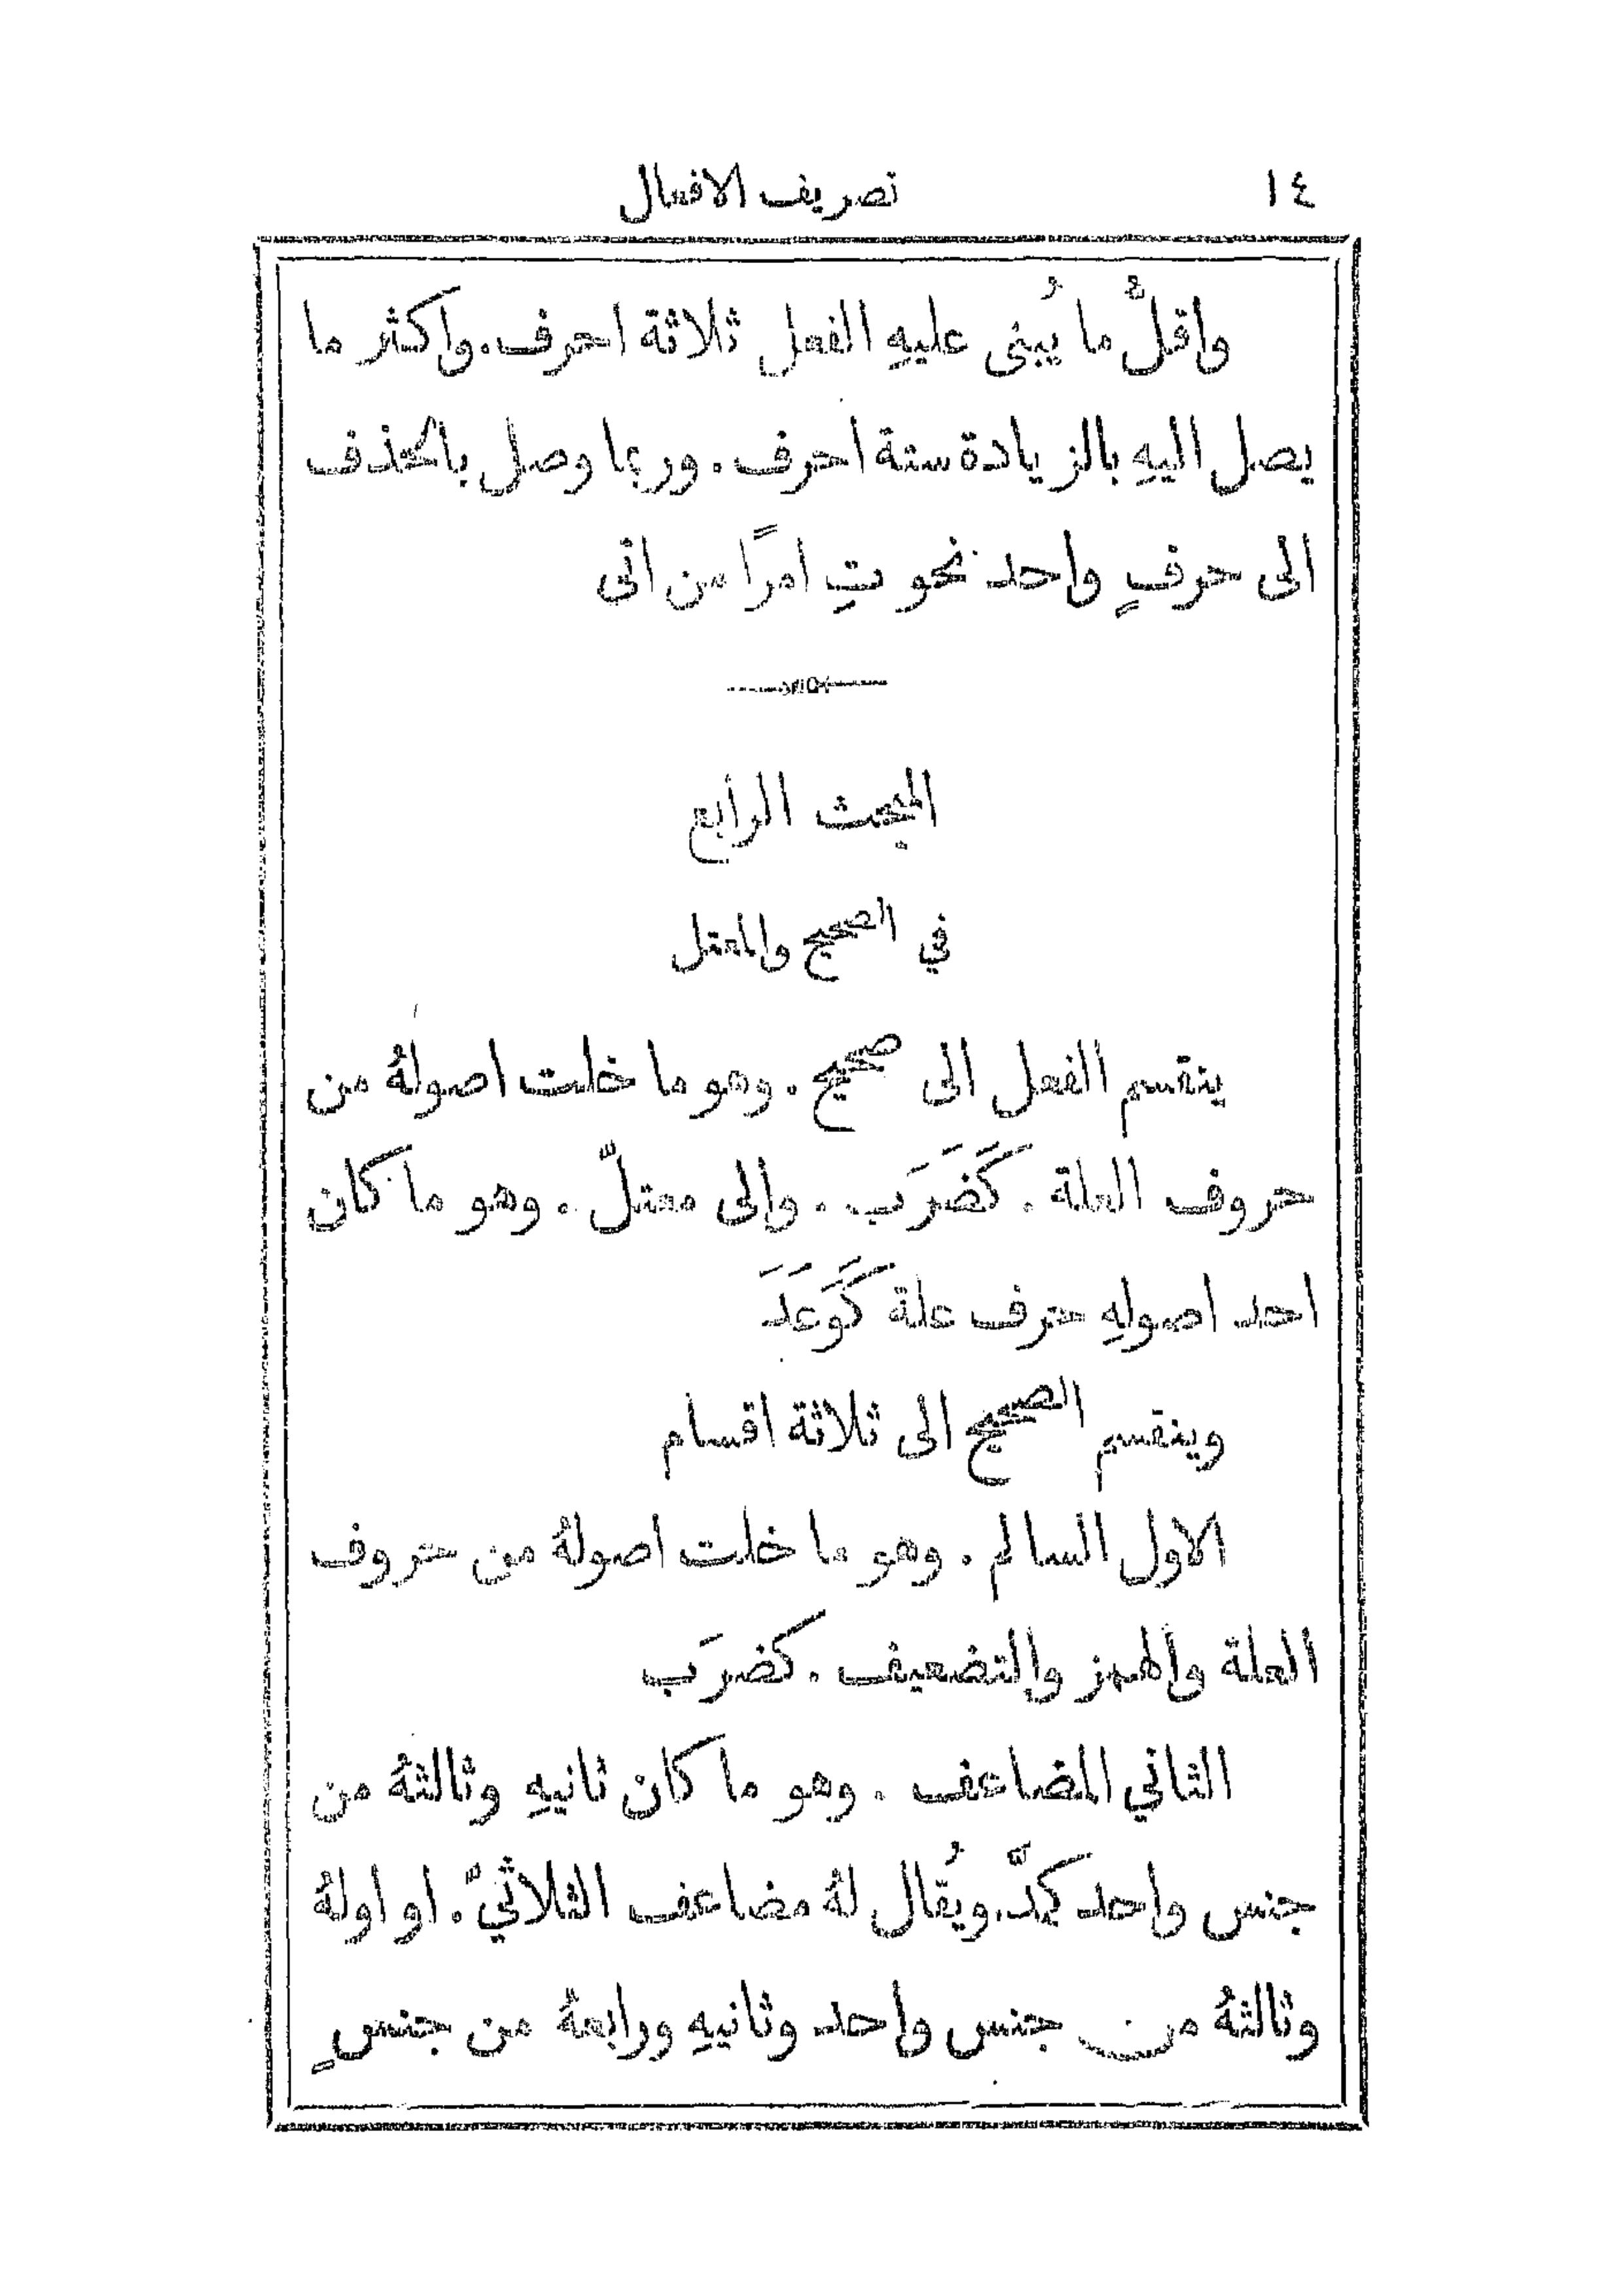 ١٤ تصريف الافعال
واقلُّ ما يُبنى عليهِ الفعل ثلاثة احرف. واكثر ما
يصل اليهِ بالزيادة ستة احرف. وربما وصل بالحذف
الى حرفٍ واحد نحو تِ امرًا من اتى
المبحث الرابع
في الصحيح والمعتل
ينقسم الفعل الى صحيح. وهو ما خلت اصولهُ من
حروف العلة. كَضَرَب. والى معتلّ. وهو ما كان
احد اصولهِ حرف علة كَوَعَدَ
وينقسم الصحيح الى ثلاثة اقسام
الاول السالم. وهو ما خلت اصولهُ من حروف
العلة والهمز والتضعيف. كضرَب
الثاني المضاعف. وهو ما كان ثانيهِ وثالثهُ من
جنس واحد كمدَّ. ويُقال لهُ مضاعف الثلاثيّ. او اولهُ
وثالثهُ من جنس واحد وثانيهِ ورابعهُ من جنسٍ